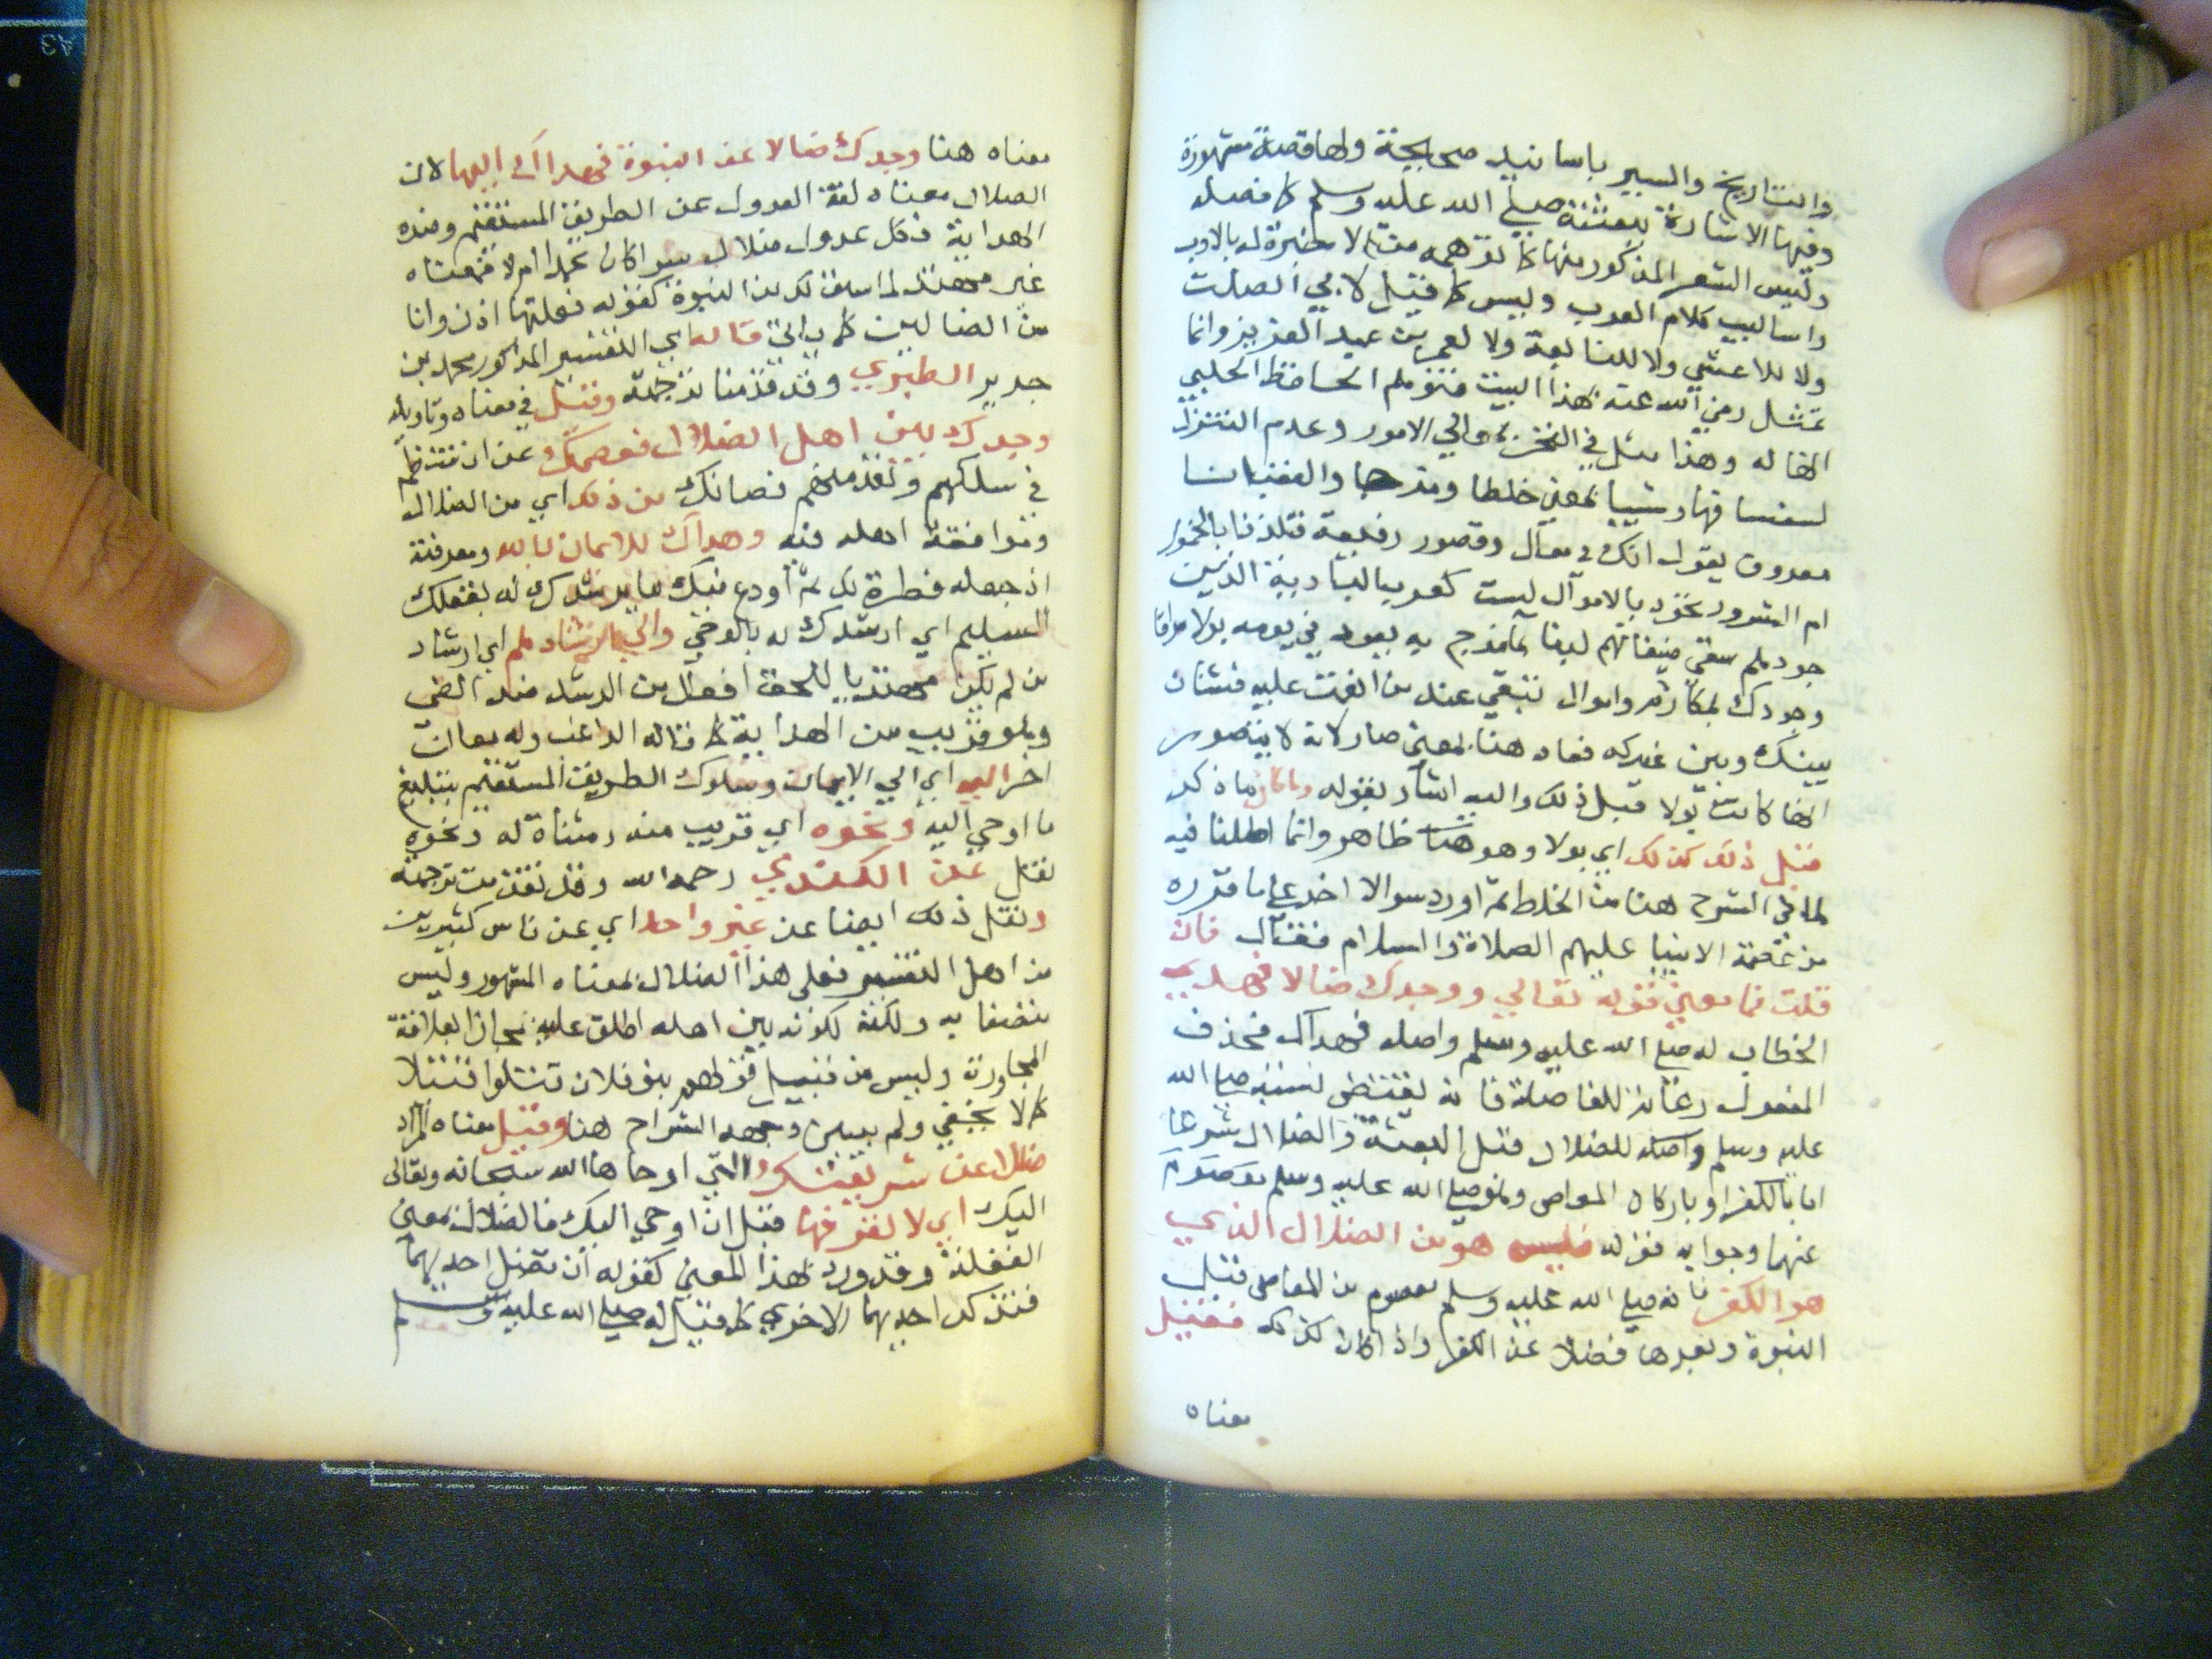 والتاريخ والسير باسانيد صحيحة ولها قصة مشهورة
وفيها الاشارة ببعثته صلى الله عليه وسلم كما فصله
وليس الشعر المذكور منها كما توهمه من لا خبرة له بالادب
واساليب كلام العرب وليس كما قيل لابي الصلت
ولا للاعشي ولا للنابغة ولا لعمر بن عبد العزيز وانما
تمثل رضي الله عنه بهذا البيت فتوهم الحافظ الحلبي
انها له وهذا مثل في الفخر بمعالي الامور وعدم التنزل
لسفسافها وشيبا بمعني خلطا ومزجا والقعبان
معروف يقول انك في معال وقصور رفيعة تتلذذ بالخمور
ام السرور تجود بالاموال لست كعرب البادية الذين
جودهم سقي ضيفانهم لبنا بما مزج به يعود في يومه بولا مراقا
وجودك بمكارم واموال تبقي عند من انعمت عليه فشتان
بينك وبين غيرك فعاد هنا بمعني صار لانه لا يتصور
انها كانت بولا قبل ذلك واليه اشار بقوله وما كان ما ذكر
قبل ذلك كذلك اي بولا وهو هنا ظاهر وانما اطلنا فيه
لما في الشرح هنا من الخلط ثم اورد سوالا اخر علي ما قرره
من عصمة الانبيا عليهم الصلاة والسلام فقال فان
قلت فما معني قوله تعالي ووجدك ضالا فهدي
الخطاب له صلى الله عليه وسلم واصله فهداك فحذف
المفعول رعاية للفاصلة فانه يقتضي نسبته صلى الله
عليه وسلم واصله للضلال قبل البعثة والضلال شرعا
اما بالكفر او باركاب المعاصي وهو صلى الله عليه وسلم معصوم
عنهما وجوابه قوله فليس هو من الضلال الذي
هو الكفر فانه صلى الله عليه وسلم معصوم من المعاصي قبل
النبوة وبعدها فضلا عن الكفر واذا كان كذلك فقيل
معناه
معناه هنا وجدك ضالا عن النبوة فهداك اليها لان
الضلال معناه لغة العدول عن الطريق المستقيم وضده
الهداية فكل عدول ضلال سوا كان عمدا ام لا فمعناه
غير مهتد لما سبق لك من النبوة كقوله فعلتها اذن وانا
من الضالين كما ياتي قاله اي التفسير المذكور محمد بن
جرير الطبري وقد قدمنا ترجمته وقيل في معناه وتاويله
وجدك بين اهل الضلال فعصمك عن ان تنتظم
في سلكهم وتعد منهم فصانك من ذلك اي من الضلال
وموافقة اهله فيه وهداك للايمان بالله ومعرفته
اذ جعله فطرة لك ثم اودع فيك ما يرشدك له بعقلك
السليم اي ارشدك له بالوحي والي ارشادهم اي ارشاد
من لم يكن مهتديا للحق افعال من الرشد ضد الغي
وهو قريب من الهداية كما قاله الراغب وله معان
اخر اليه اي الي الايمان وسلوك الطريق المستقيم بتبليغ
ما اوحي اليه ونحوه اي قريب منه رمشناة له ونحوه
نقل عن الكندي رحمه الله وقد تقدمت ترجمته
ونقل ذلك ايضا عن غير واحد اي عن ناس كثيرين
من اهل التفسير فعلي هذا الضلال بمعناه المشهور وليس
متصفا به ولكنه لكونه بين اهله اطلق عليه مجازا لعلاقة
المجاورة وليس من قبيل قولهم بنو فلان قتلوا قتيلا
كما لا يخفي ولم يبين وجهه الشراح هنا وقيل معناه المراد
ضالا عن شريعتك التي اوحاها الله سبحانه وتعالى
اليك اي لا تعرفها قبل ان اوحي اليك فالضلال بمعني
الغفلة وقد ورد بهذا المعني كقوله ان تضل احديهما
فتذكر احديهما الاخري كما قيل له صلى الله عليه وسلم